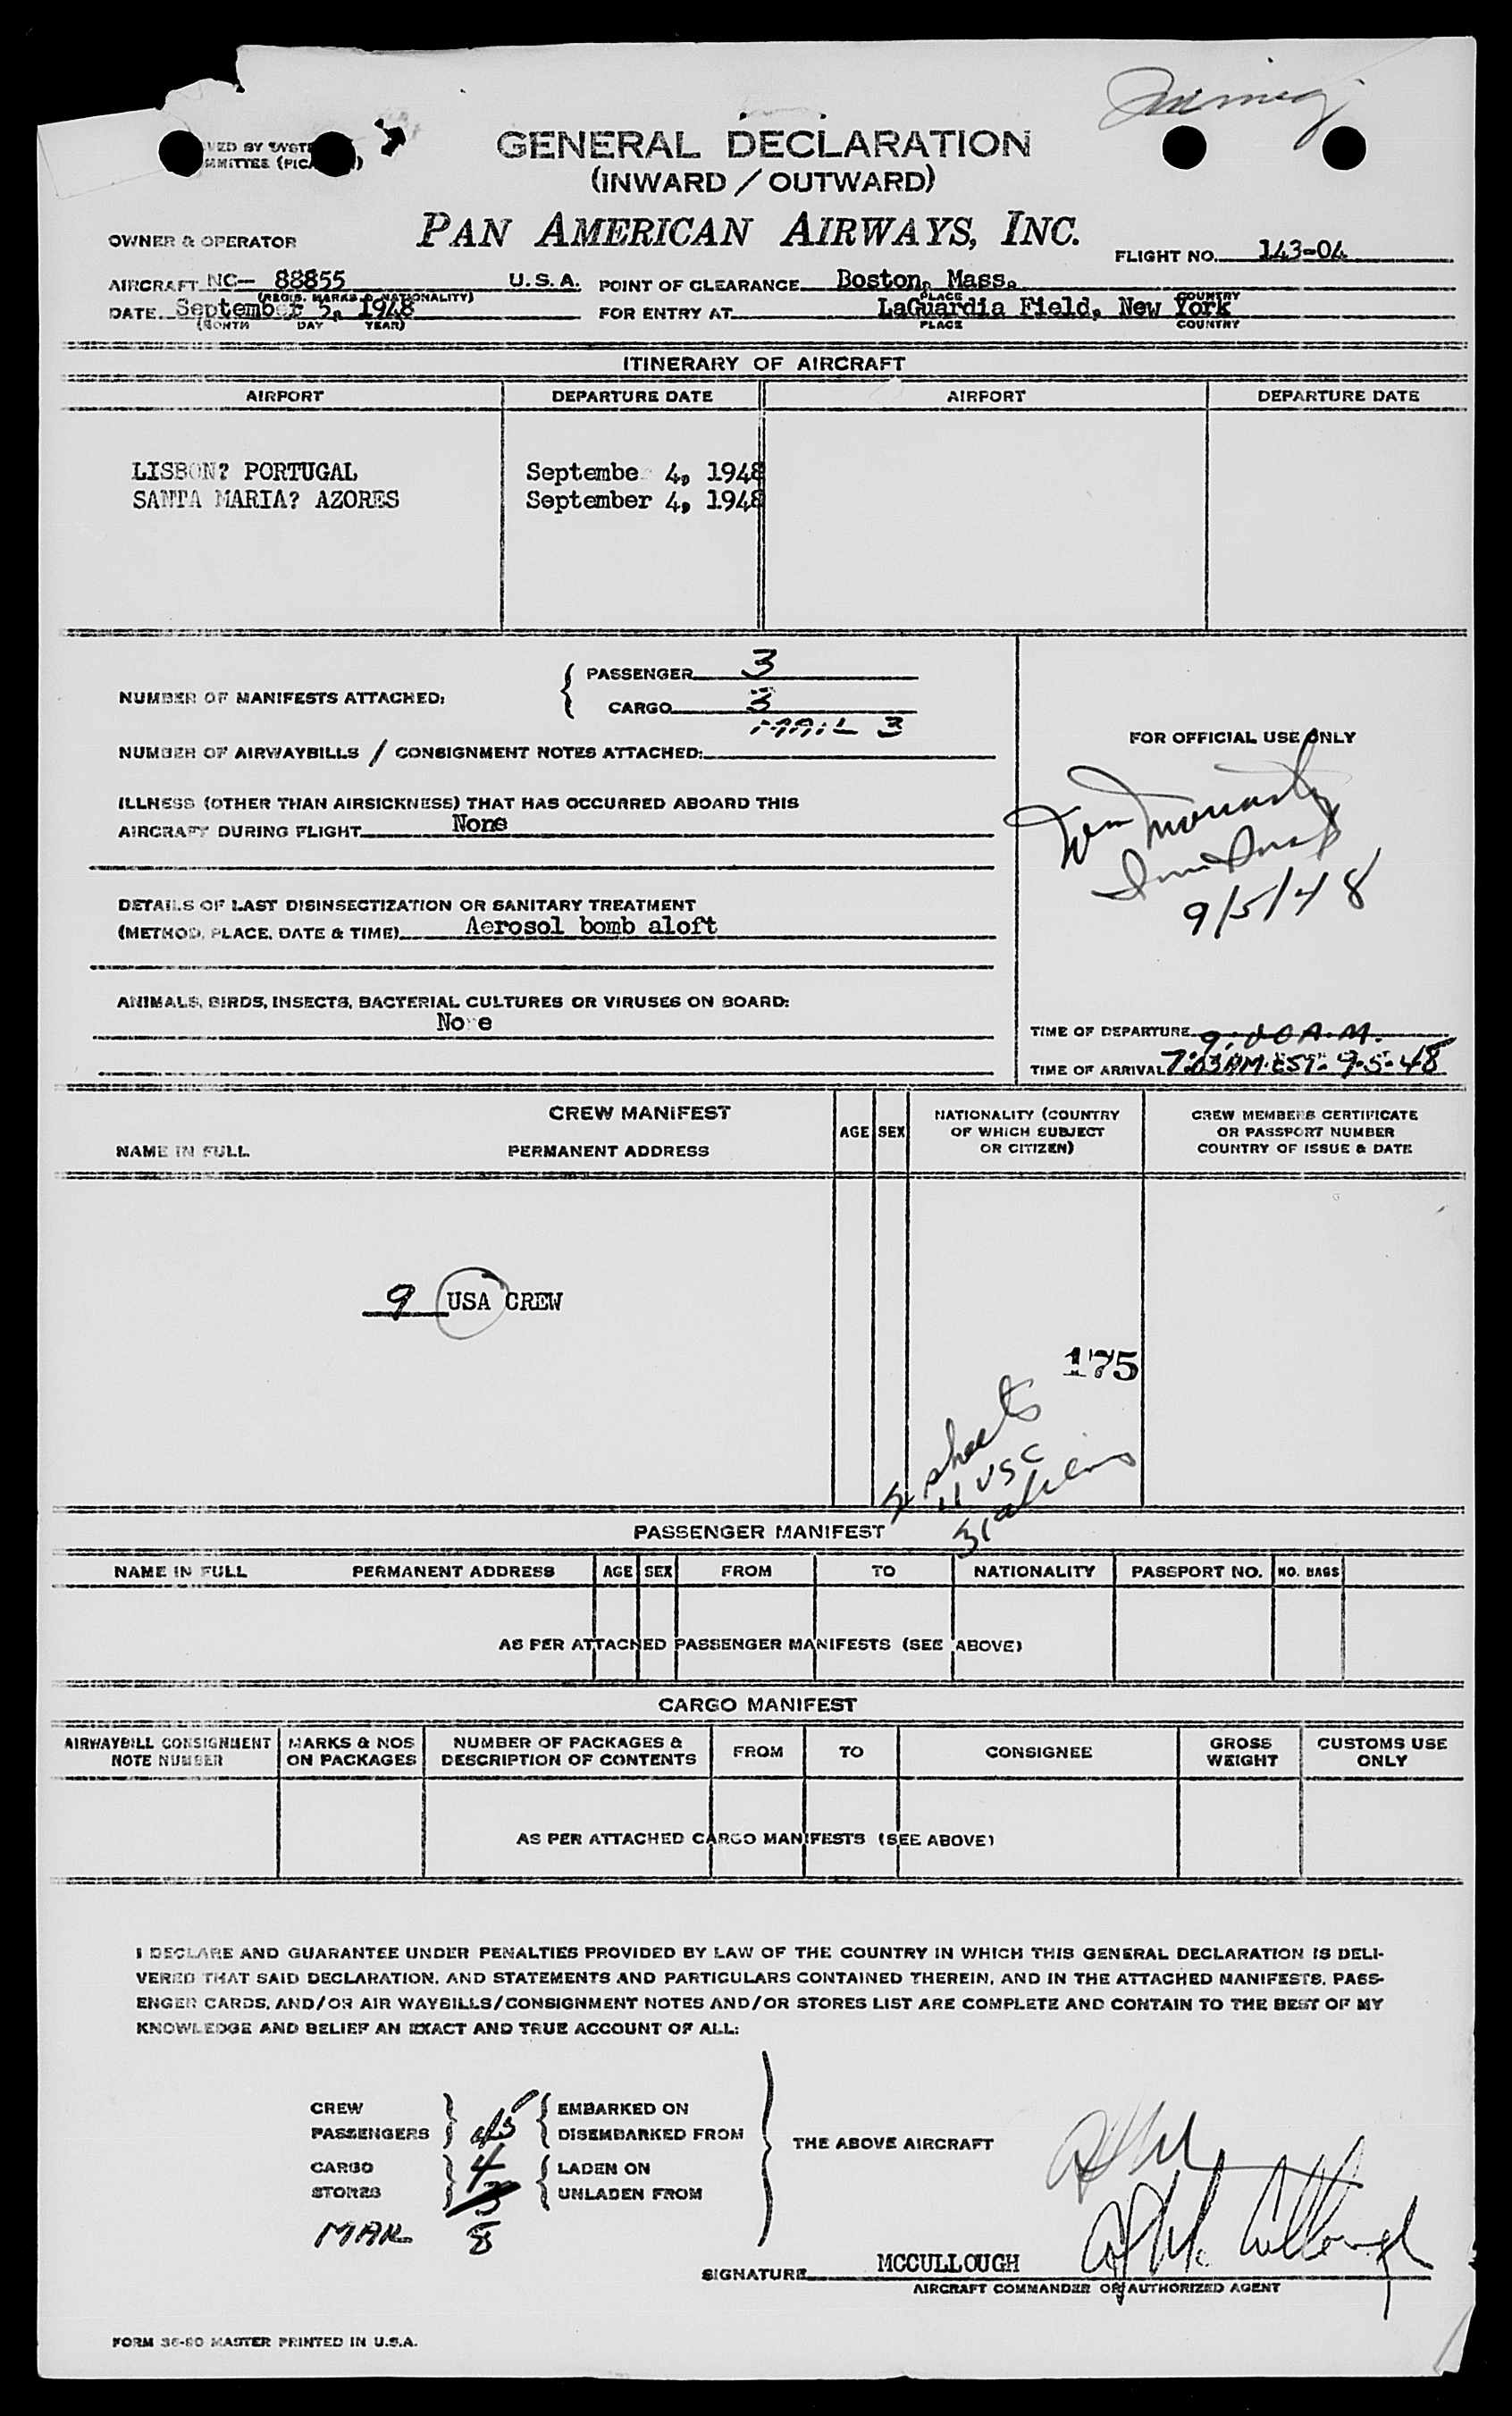 GENERAL DECLARATION
(INWARD / OUTWARD)
OWNER & OPERATOR PAN AMERICAN AIRWAYS, INC.
FLIGHT NO. 143-04
AIRCRAFT NC- 88855 U.S.A. POINT OF CLEARANCE Boston, Mass.
(REGIS. MARKS & NATIONALITY) PLACE COUNTRY
DATE September 5, 1948 FOR ENTRY AT LaGuardia Field, New York
(MONTH DAY YEAR) PLACE COUNTRY
ITINERARY OF AIRCRAFT
AIRPORT DEPARTURE DATE AIRPORT DEPARTURE DATE
LISBON? PORTUGAL Septembe 4, 1948
SANTA MARIA? AZORES September 4, 1948
NUMBER OF MANIFESTS ATTACHED: PASSENGER 3
CARGO 3
MAIL 3
NUMBER OF AIRWAYBILLS / CONSIGNMENT NOTES ATTACHED:
ILLNESS (OTHER THAN AIRSICKNESS) THAT HAS OCCURRED ABOARD THIS
AIRCRAFT DURING FLIGHT None
DETAILS OF LAST DISINSECTIZATION OR SANITARY TREATMENT
(METHOD, PLACE, DATE & TIME) Aerosol bomb aloft
ANIMALS, BIRDS, INSECTS, BACTERIAL CULTURES OR VIRUSES ON BOARD:
No e
FOR OFFICIAL USE ONLY
9/5/48
TIME OF DEPARTURE 9:00 A.M.
TIME OF ARRIVAL 7:03AM-EST- 9-5-48
CREW MANIFEST
NAME IN FULL PERMANENT ADDRESS
AGE SEX
NATIONALITY (COUNTRY
OF WHICH SUBJECT
OR CITIZEN)
CREW MEMBERS CERTIFICATE
OR PASSPORT NUMBER
COUNTRY OF ISSUE & DATE
9 USA CREW
175
sheets
11 USC
31 aliens
PASSENGER MANIFEST
NAME IN FULL PERMANENT ADDRESS AGE SEX FROM TO NATIONALITY PASSPORT NO. NO. BAGS
AS PER ATTACHED PASSENGER MANIFESTS (SEE ABOVE)
CARGO MANIFEST
AIRWAYBILL CONSIGNMENT
NOTE NUMBER
MARKS & NOS
ON PACKAGES
NUMBER OF PACKAGES &
DESCRIPTION OF CONTENTS
FROM TO CONSIGNEE
GROSS
WEIGHT
CUSTOMS USE
ONLY
AS PER ATTACHED CARGO MANIFESTS (SEE ABOVE)
I DECLARE AND GUARANTEE UNDER PENALTIES PROVIDED BY LAW OF THE COUNTRY IN WHICH THIS GENERAL DECLARATION IS DELI-
VERED THAT SAID DECLARATION, AND STATEMENTS AND PARTICULARS CONTAINED THEREIN, AND IN THE ATTACHED MANIFESTS, PASS-
ENGER CARDS, AND/OR AIR WAYBILLS/CONSIGNMENT NOTES AND/OR STORES LIST ARE COMPLETE AND CONTAIN TO THE BEST OF MY
KNOWLEDGE AND BELIEF AN EXACT AND TRUE ACCOUNT OF ALL:
CREW EMBARKED ON
PASSENGERS DISEMBARKED FROM
THE ABOVE AIRCRAFT
CARGO 4 LADEN ON
STORES 3 UNLADEN FROM
8
SIGNATURE MCCULLOUGH
AIRCRAFT COMMANDER OR AUTHORIZED AGENT
FORM 36-80 MASTER PRINTED IN U.S.A.